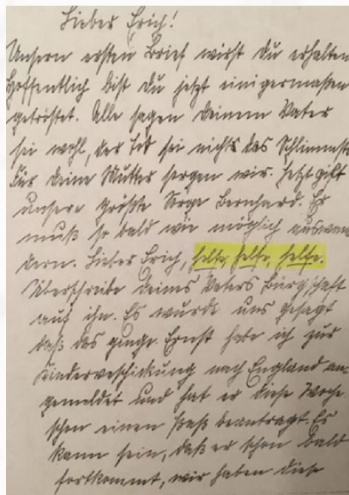 Lieber Erich!
Unsern ersten Brief wirst du erhalten
hoffentlich bist du jetzt einigermaßen
getröstet. Alle sagen deinem Vater
sei wohl, der Tod sei nichts das Schlimmste
Für deine Mutter sorgen wir. Jetzt gilt
unsere größte Sorge Bernhard. Er
muß so bald wie möglich auswan
dern. Lieber Erich, helfe, helfe, helfe.
Überschreibe deines Vaters Bürgschaft
auf ihn. Es wurde uns gesagt
daß das ginge Ernst habe ich zur
Kinderverschickung nach England an
gemeldet und hat er diese Woche
schon einen Paß beantragt. Es
kann sein, daß er schon bald
fortkommt, wir haben diese